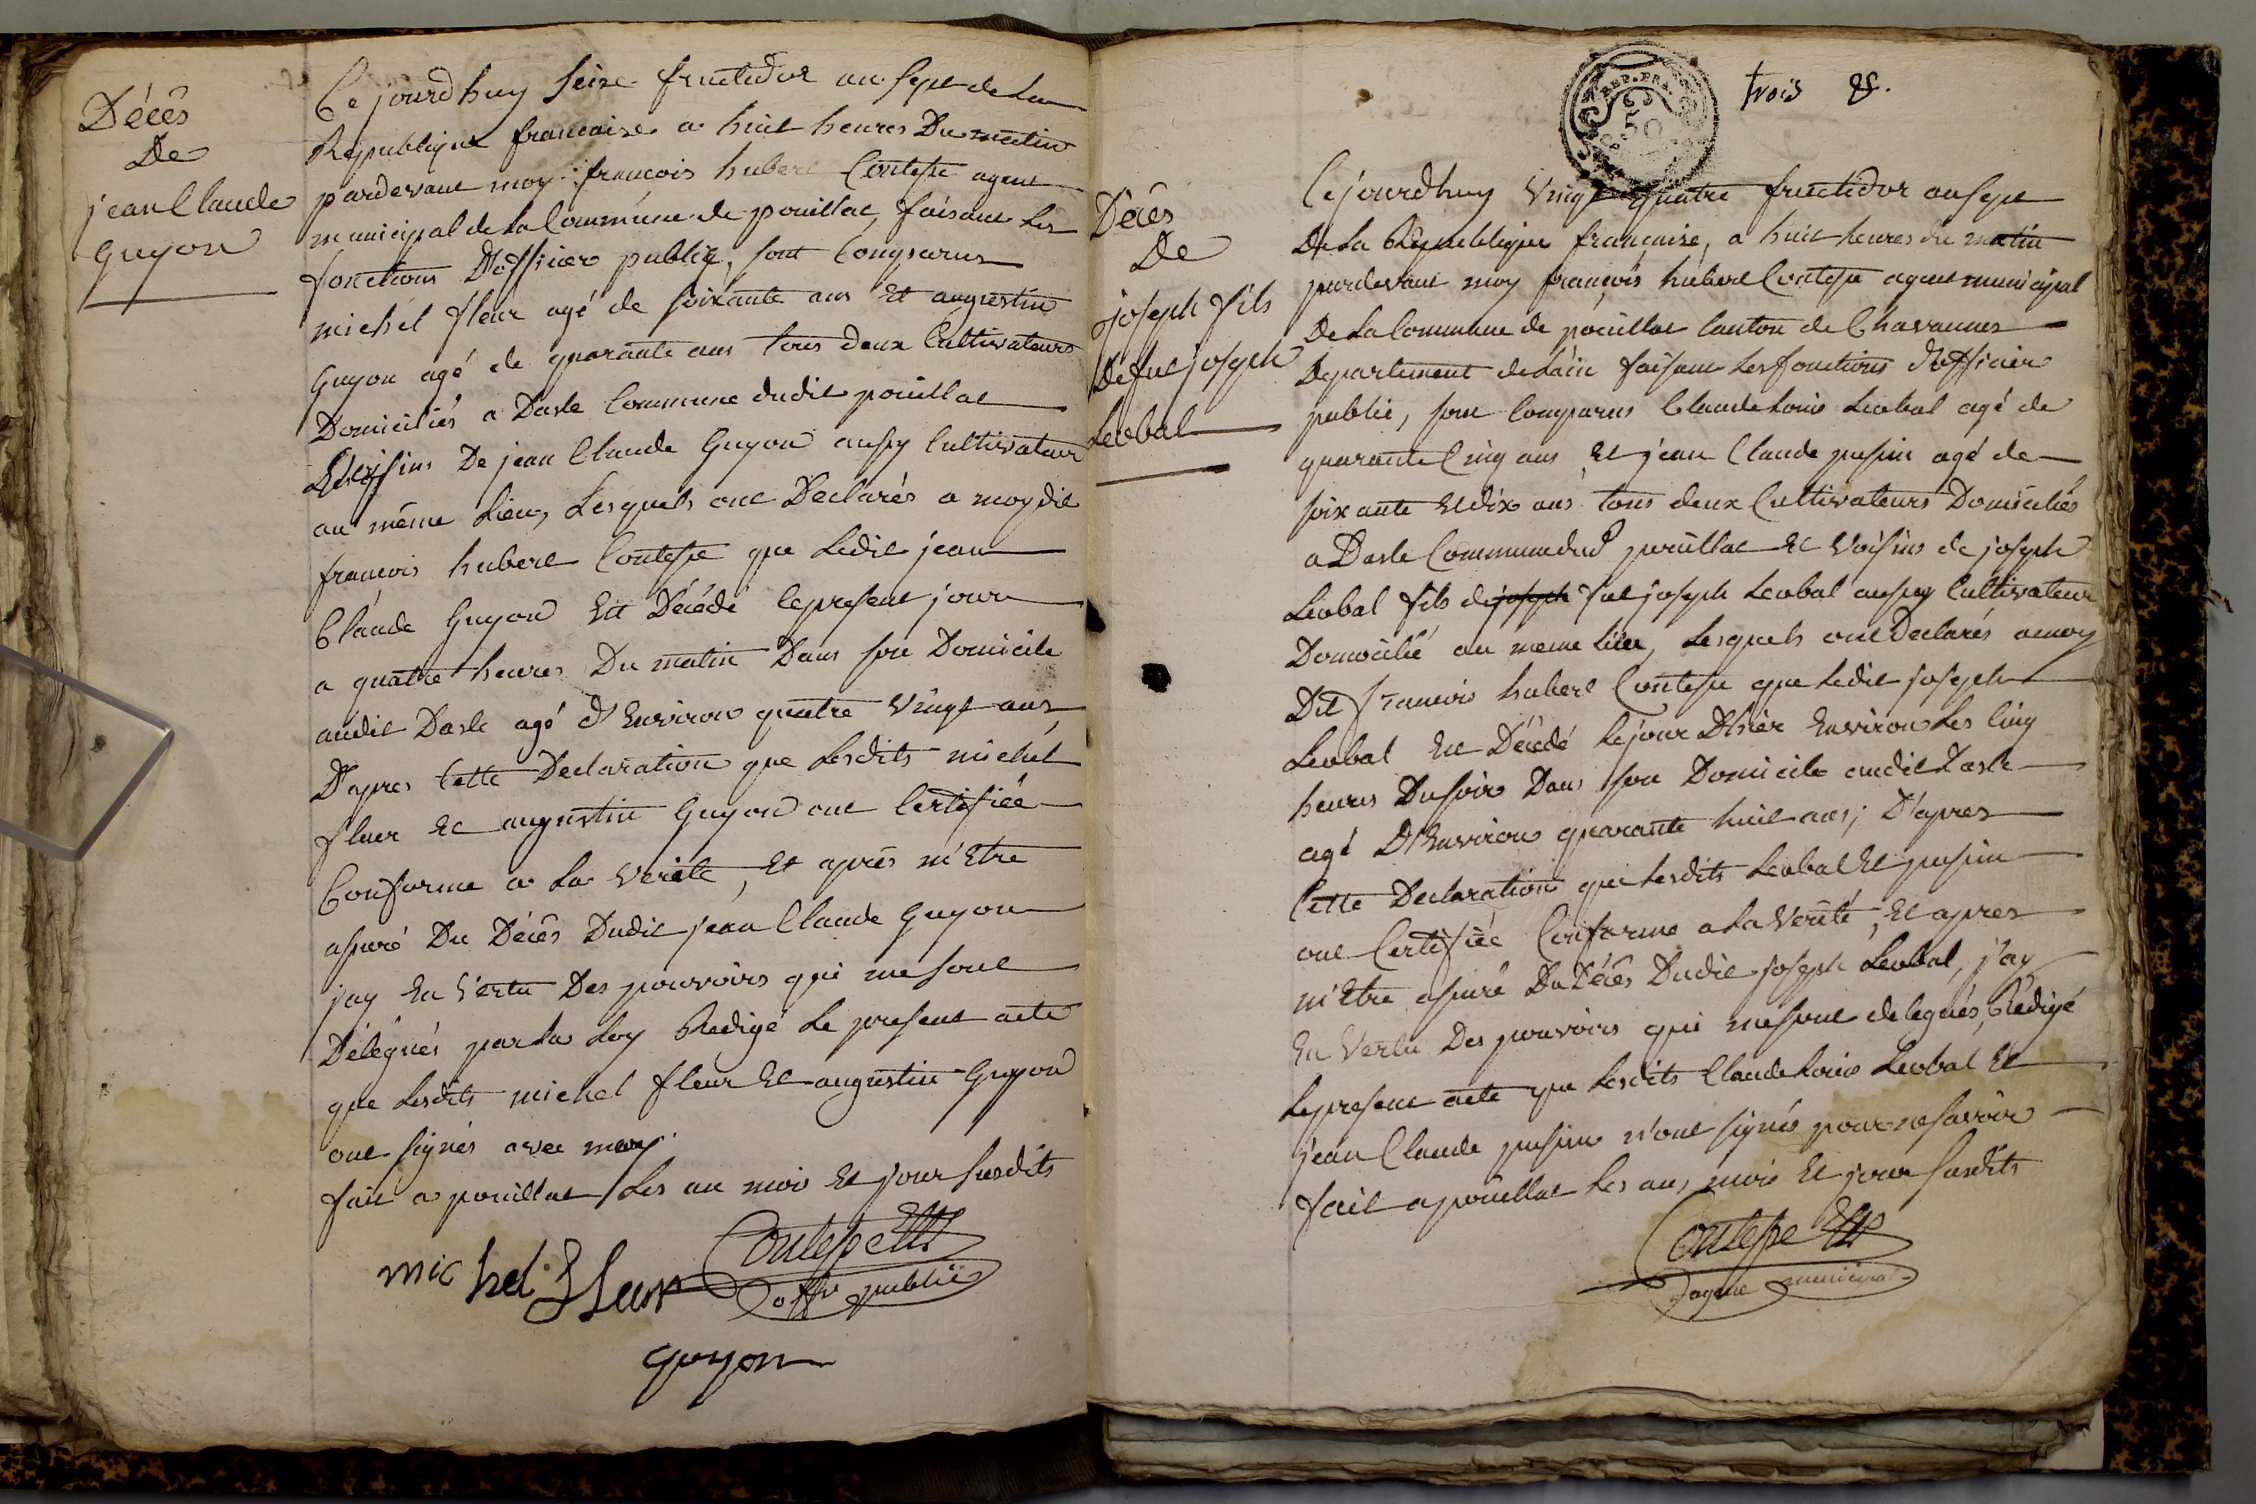 Décês
De
jean Claude
Guyon
Ce jourdhuy seize fructidor an sept de La
Republique francaise a huit heures Du matin
pardevant moy francois hubert Contesse agent
municipal de La Commune de pouillat, faisant Les
fonctions D'officier public, sont Comparus
michel fleur agé de soixante ans Et augustin
Guyon agé de quarante ans tous deux Cultivateurs
Domiciliés a Dasle Commune dudit pouillat
Et voisins De jean Claude Guyon aussy Cultivateur
au même Lieu, Lesquels ont Declarés a moydit
francois hubert Contesse que Ledit jean
Claude Guyon Est Décédé Lepresent jour
a quatre heures Du matin Dans son Domicile
audit Dasle agé d'Environ quatre Vingt ans
D'apres Cette Declaration que Lesdits michel
fleur Et augustin Guyon ont Certifiée
Conforme a La Verité, Et après m'Etre
assuré Du Décês Dudit jean Claude Guyon
j'ay En Vertu Des pouvoirs qui me sont
Délégués par La Loy Redigé Le present acte
que Lesdits michel fleur Et augustin Guyon
ont signés avec moy.
fait a pouillat Les an mois Et jour susdits
Contesse
michel fleur
offr public
guyon
REP. FRA.
50
trois &.
Décês
De
joseph fils
De fue joseph
Leobal
Cejourdhuy Vingt quatre fructidor an sept
De La Republique française, a huit heures du matin
pardevant moy françois hubert Contesse agent municipal
De La Commune de pouillat Canton de Chavannes
Departement de Lain faisant Les fonctions d'officier
public, sont Comparus Claude Louis Leobal agé de
quarante Cinq ans Et jean Claude pusin agé de
soixante Et dix ans tous deux Cultivateurs Domiciliés
a Dasle Commune dud pouillat Et Voisins de joseph
Leobal fils de joseph fue joseph Leobal aussy Cultivateur
Domicilié au meme lieu, Lesquels ont Declarés a moy
Dit francois hubert Contesse que Ledit joseph
Leobal Est Décédé Lejour D'hier Environ Les Cinq
heures Du soir Dans son Domicile audit Dasle
agé D'Environ quarante huit ans; D'apres
Cette Declaration que Lesdits Leobal Et pusin
ont Certifiée Conforme a La Verité, Et apres
m'Etre assuré Du Décês Dudit joseph Leobal, j'ay
En Vertu Des pouvoirs qui me sont delegués, Rédigé
Lepresent acte que Lesdits Claude Louis Leobal Et
jean Claude pusin n'ont signés pour ne savoir
fait a pouillat Les an, mois Et jour susdits
Contesse
agent municipal